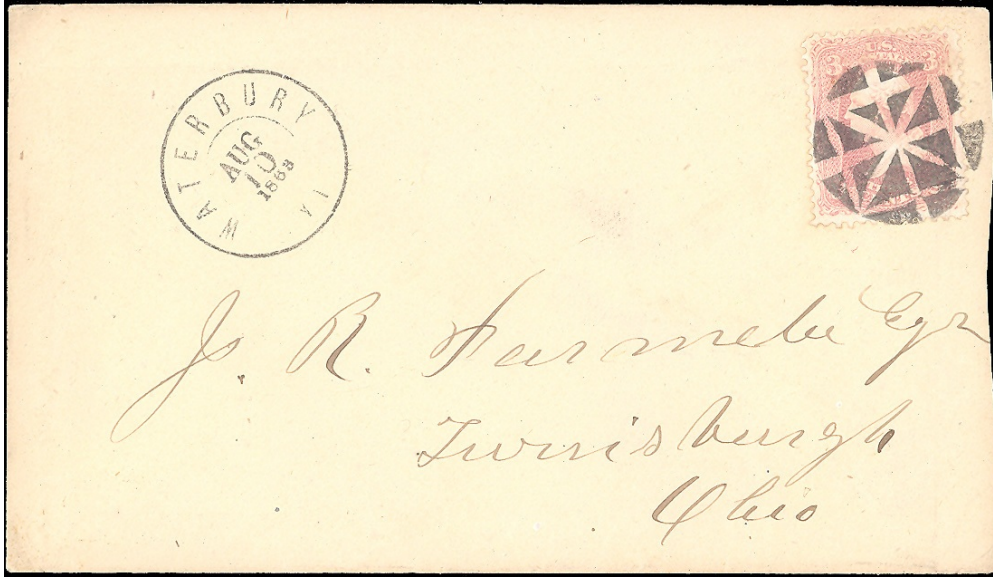 WATERBURY
AUG
10
1868
U.S.
3 3
J. R. Parmele Eqr
Twinsburgh
Ohio